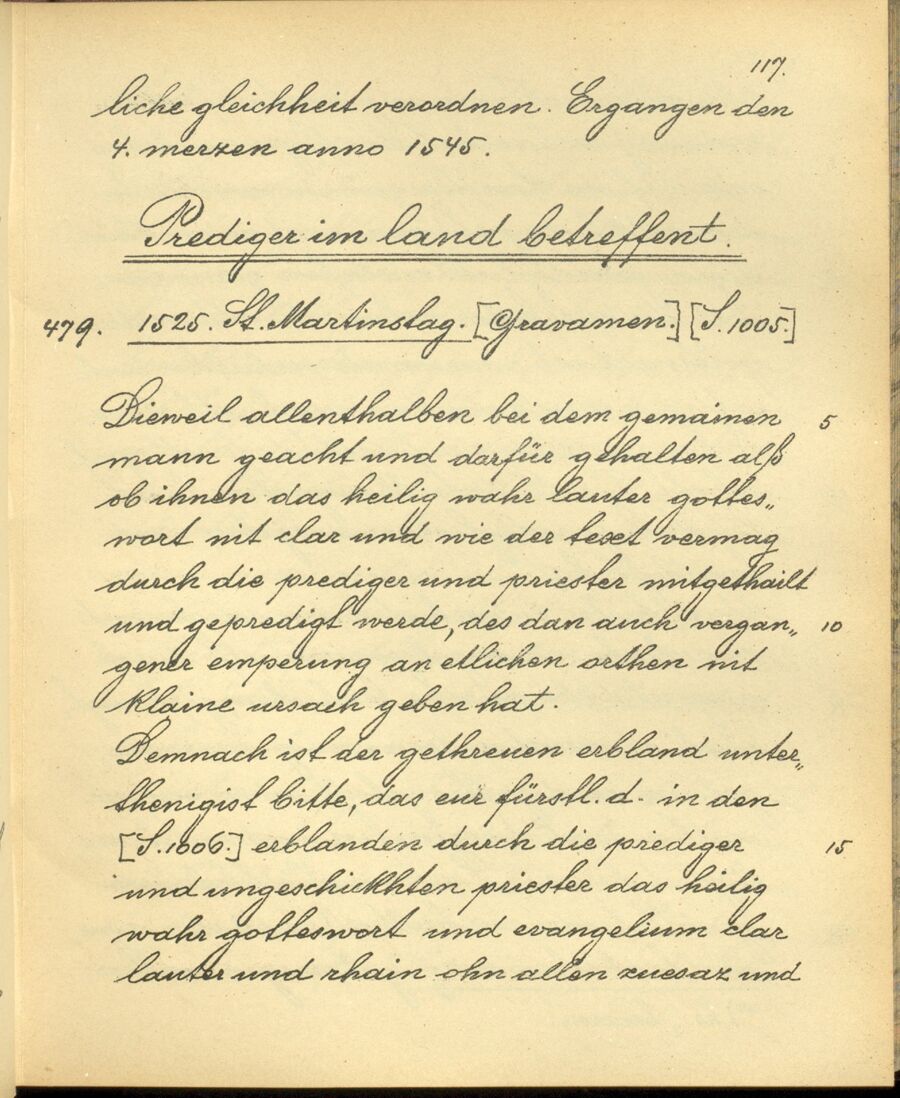 117.
liche gleichheit verordnen. Ergangen den
4. merzen anno 1545.
Prediger im land betreffent.
479. 1525. St. Martinstag. [Gravamen.] [S. 1005.]
Dieweil allenthalben bei dem gemainen 5
mann geacht und darfür gehalten alß
ob ihnen das heilig wahr lauter gottes„
wort nit clar und wie der text vermag
durch die prediger und priester mitgethailt
und gepredigt werde, des dan auch vergan„ 10
gener emperung an etlichen orthen nit
klaine ursach geben hat.
Demnach ist der gethreuen erbland unter„
thenigist bitte, das eur fürstl. d. in den
[S. 1006.] erblanden durch die prediger 15
und ungeschickhten priester das heilig
wahr gotteswort und evangelium clar
lauter und rhain ohn allen zuesaz und